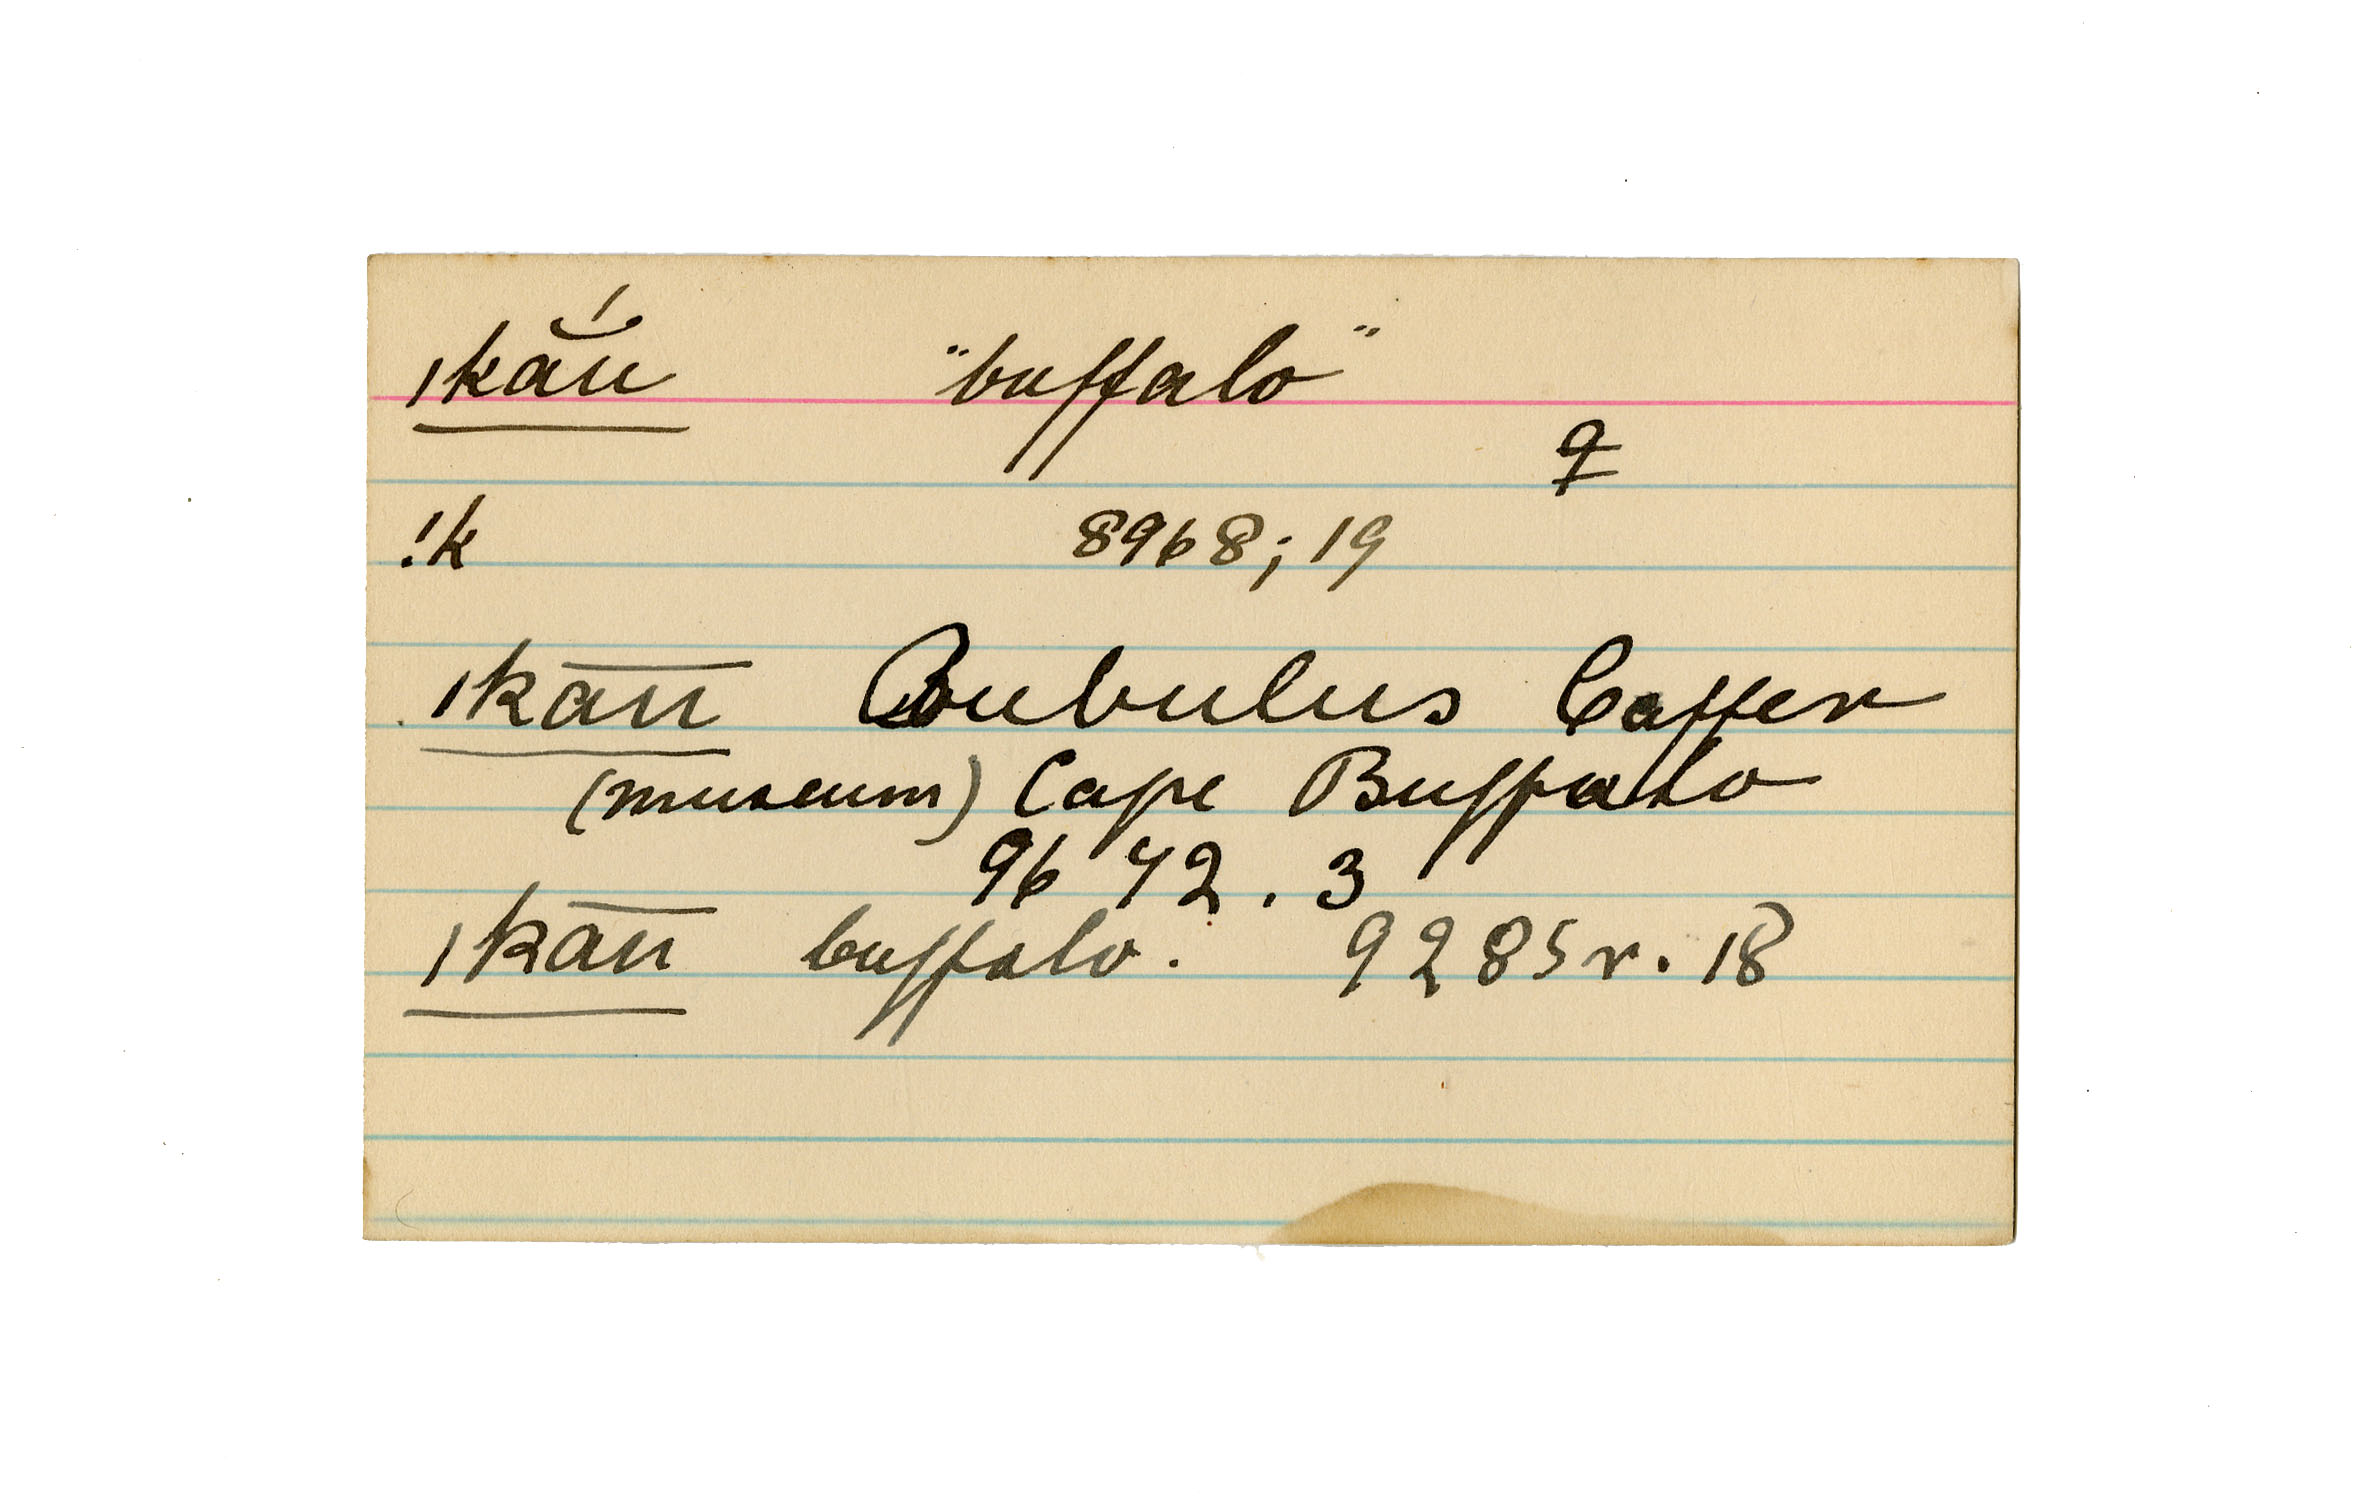 ıkắu "buffalo"
q
!k 8968; 19
ıkāū Bubulus Caffer
(museum) Cape Buffalo
9642. 3
ıkāū buffalo. 9285r. 18